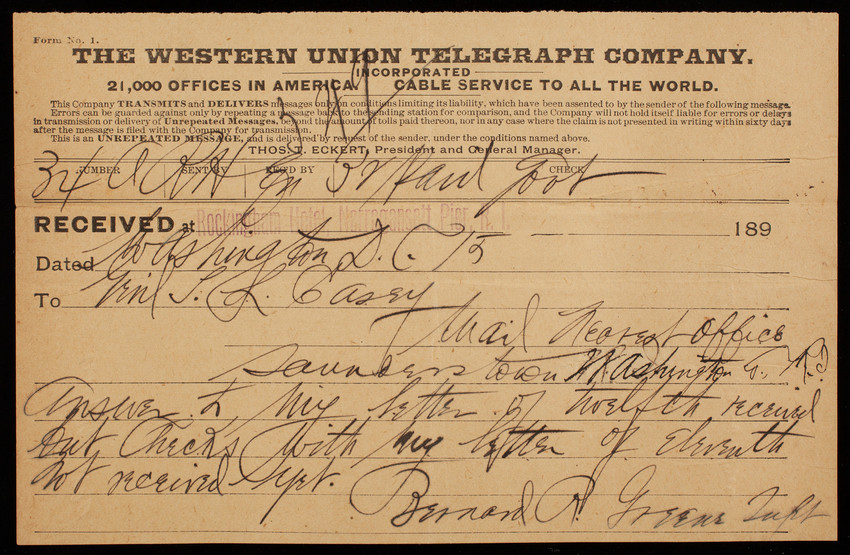 Form No. 1.
THE WESTERN UNION TELEGRAPH COMPANY.
INCORPORATED
21,000 OFFICES IN AMERICA. CABLE SERVICE TO ALL THE WORLD.
This Company TRANSMITS and DELIVERS messages only on conditions limiting its liability, which have been assented to by the sender of the following message.
Errors can be guarded against only by repeating a message back to the sending station for comparison, and the Company will not hold itself liable for errors or delays
in transmission or delivery of Unrepeated Messages, beyond the amount of tolls paid thereon, nor in any case where the claim is not presented in writing within sixty days
after the message is filed with the Company for transmission.
This is an UNREPEATED MESSAGE, and is delivered by request of the sender, under the conditions named above.
THOS. T. ECKERT, President and General Manager.
NUMBER SENT BY REC'D BY CHECK
34 Paid Govt
RECEIVED at Rockingham Hotel Narragansett Pier R. I. 189
Dated Washington D. C. 15
To Genl T. L. Casey
Mail nearest office
Saunderstown Washington Co. R.I
Answer to my letter of twelfth received
but checks with my letter of eleventh
not received yet.
Bernard R. Greene Supt